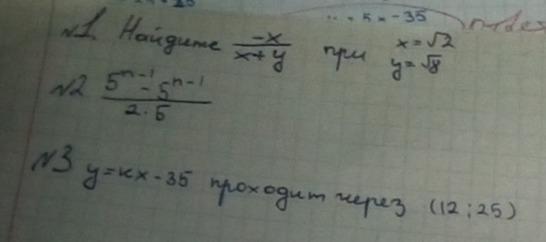 ·· · 5x=-35
№1. Найдите -x/(x+y) при x=√2 y=√8
№2 (5^(n-1) - 5^(n-1))/(2·5)
№3 y=kx-35 проходит через (12;25)